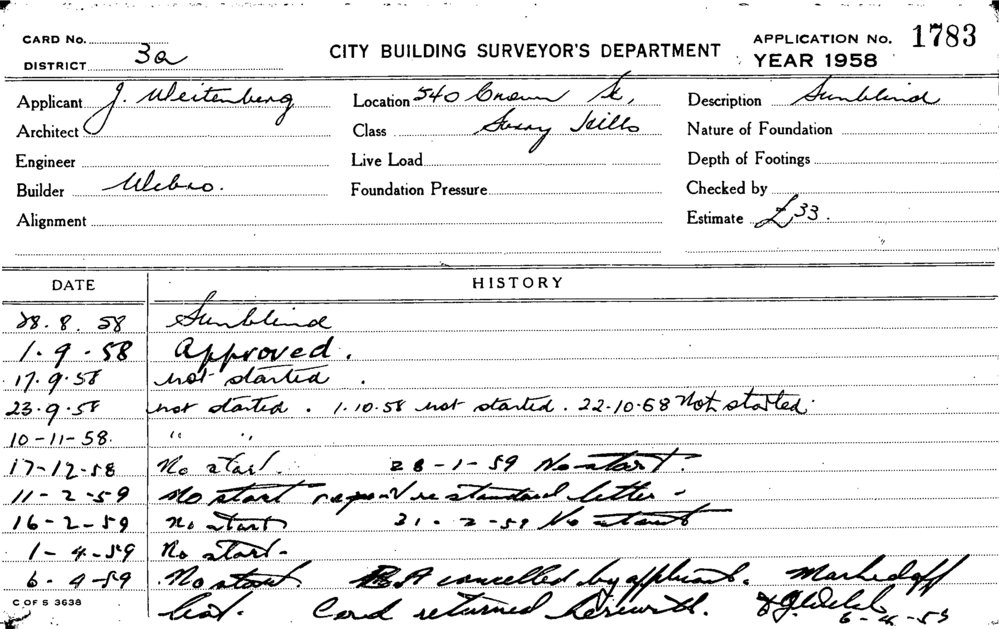 CARD No. APPLICATION No. 1783
DISTRICT 3a CITY BUILDING SURVEYOR'S DEPARTMENT YEAR 1958
Applicant J. Weitenberg Location 540 Crown St, Description Sunblind
Architect Class Surry Hills Nature of Foundation
Engineer Live Load Depth of Footings
Builder Webro. Foundation Pressure Checked by
Alignment Estimate £33.
DATE HISTORY
28. 8. 58 Sunblind
1. 9. 58 Approved.
17. 9. 58 not started.
23. 9. 58 not started. 1.10.58 not started. 22-10-68 Not started.
10-11-58. " "
17-12-58 No start. 28-1-59 No start.
11-2-59 No start re standard letter -
16-2-59 No start 21. 2-59 No start
1-4-59 No start-
6. 4-59 No start. BA cancelled by applicant. Marked off
C OF S 3638
list. Card returned herewith. 6-4-59